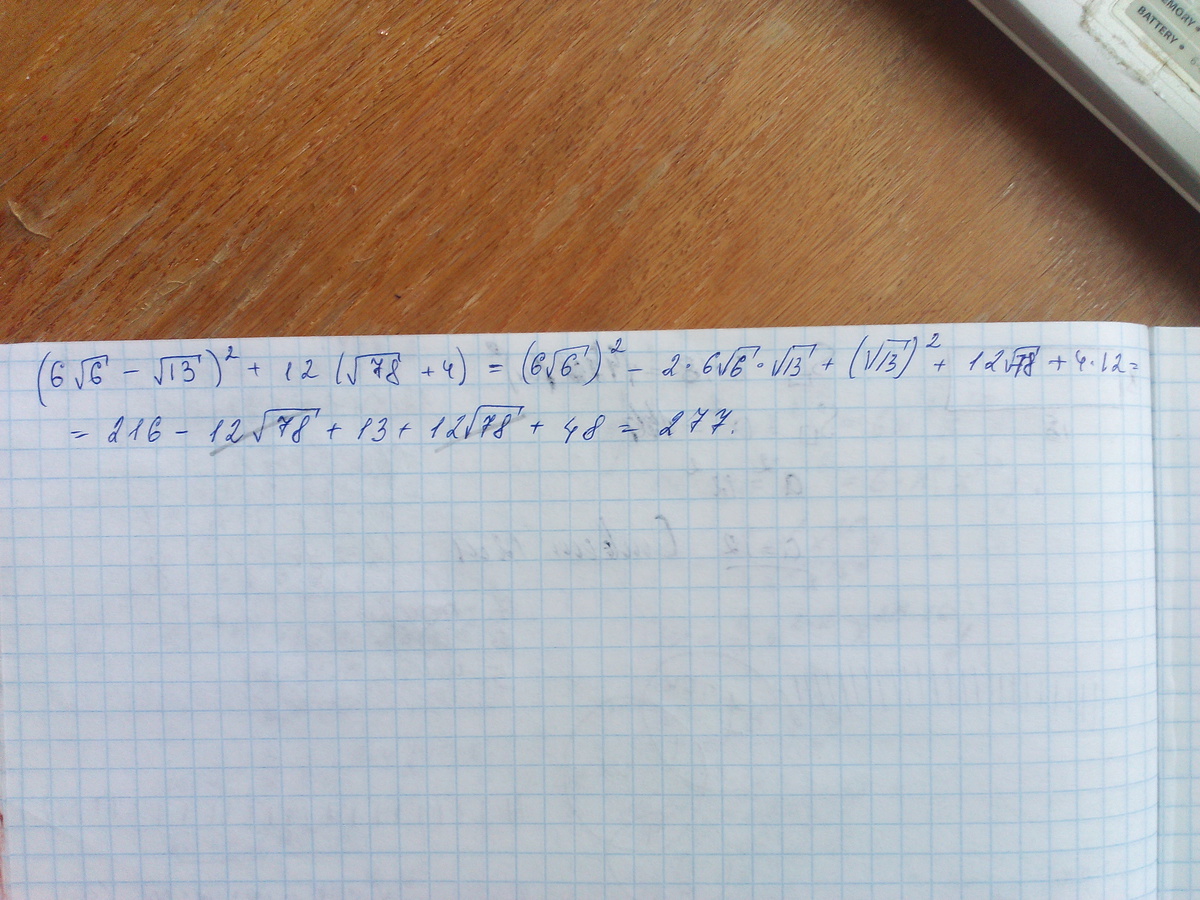 MEMORY •
BATTERY • 6
(6√6 − √13)² + 12(√78 + 4) = (6√6)² − 2·6√6·√13 + (√13)² + 12√78 + 4·12 =
= 216 − 12√78 + 13 + 12√78 + 48 = 277.